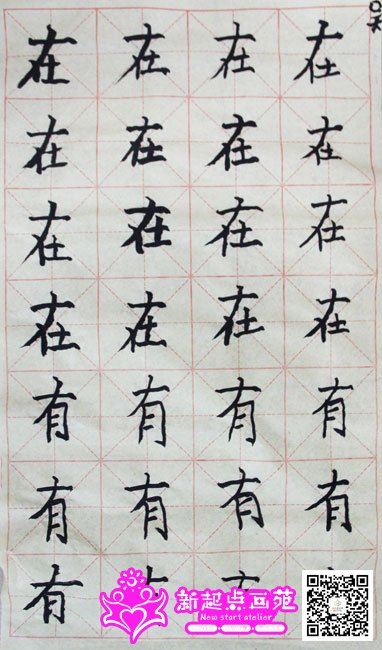 在 在 在 在
在 在 在 在
在 在 在 在
在 在 在 在
有 有 有 有
有 有 有 有
有
新起点画苑
New start atelier